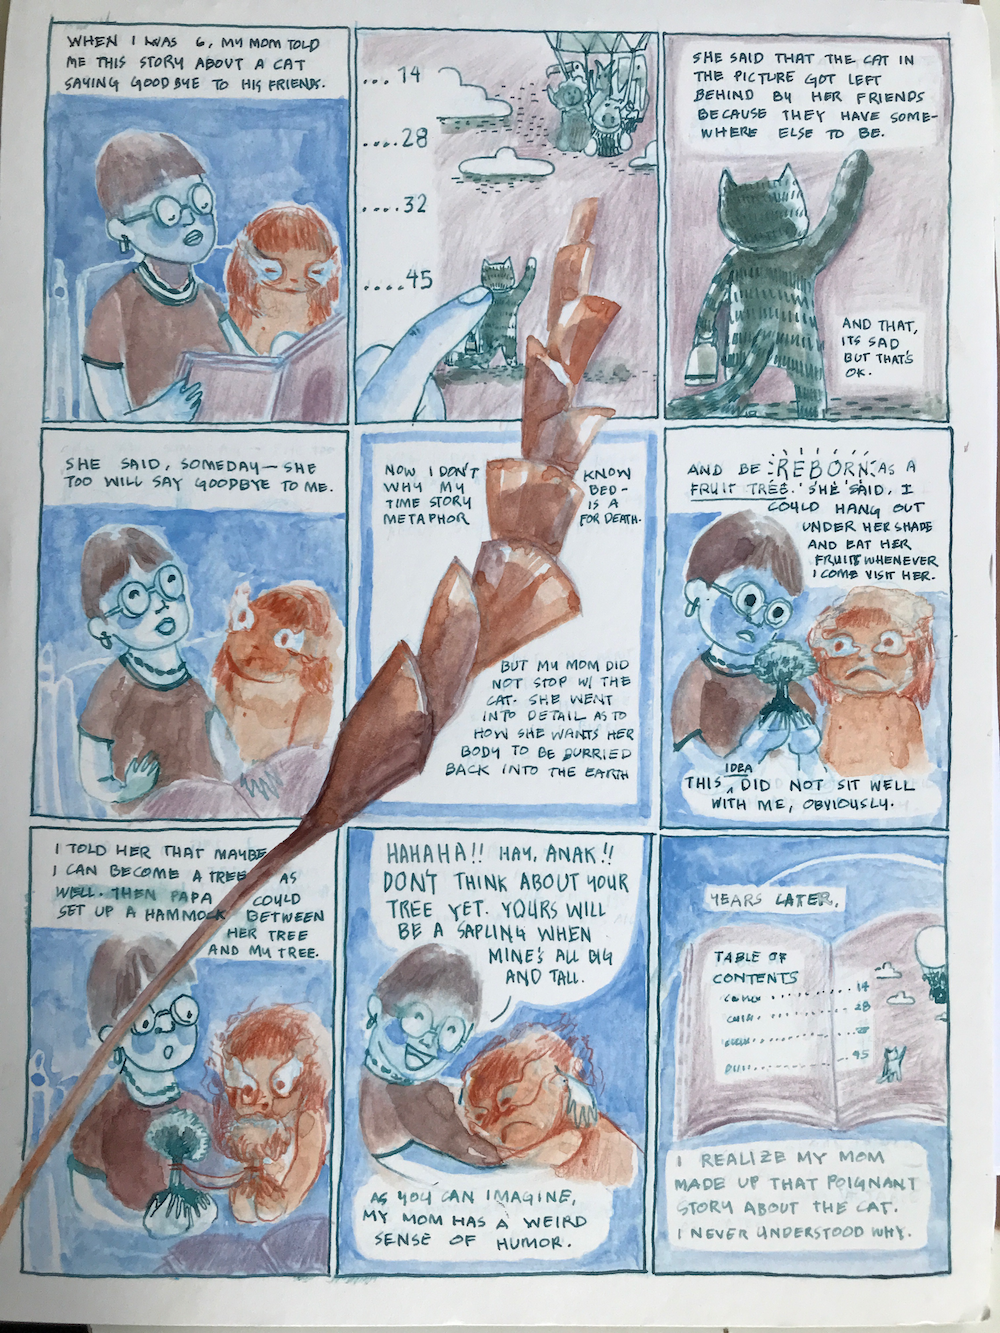 WHEN I WAS 6, MY MOM TOLD
ME THIS STORY ABOUT A CAT
SAYING GOODBYE TO HIS FRIENDS.
....14
....28
....32
....45
SHE SAID THAT THE CAT IN
THE PICTURE GOT LEFT
BEHIND BY HER FRIENDS
BECAUSE THEY HAVE SOME-
WHERE ELSE TO BE.
AND THAT,
ITS SAD
BUT THAT'S
OK.
SHE SAID, SOMEDAY— SHE
TOO WILL SAY GOODBYE TO ME.
NOW I DON'T KNOW
WHY MY BED-
TIME STORY IS A
METAPHOR FOR DEATH.
BUT MY MOM DID
NOT STOP W/ THE
CAT. SHE WENT
INTO DETAIL AS TO
HOW SHE WANTS HER
BODY TO BE BURRIED
BACK INTO THE EARTH
AND BE REBORN AS A
FRUIT TREE. SHE SAID, I
COULD HANG OUT
UNDER HER SHADE
AND EAT HER
FRUITS WHENEVER
I COME VISIT HER.
THIS IDEA DID NOT SIT WELL
WITH ME, OBVIOUSLY.
I TOLD HER THAT MAYBE
I CAN BECOME A TREE AS
WELL. THEN PAPA COULD
SET UP A HAMMOCK BETWEEN
HER TREE
AND MY TREE.
HAHAHA!! HAY, ANAK!!
DON'T THINK ABOUT YOUR
TREE YET. YOURS WILL
BE A SAPLING WHEN
MINE'S ALL BIG
AND TALL.
AS YOU CAN IMAGINE,
MY MOM HAS A WEIRD
SENSE OF HUMOR.
YEARS LATER,
TABLE OF
CONTENTS
........14
........28
........45
I REALIZE MY MOM
MADE UP THAT POIGNANT
STORY ABOUT THE CAT.
I NEVER UNDERSTOOD WHY.